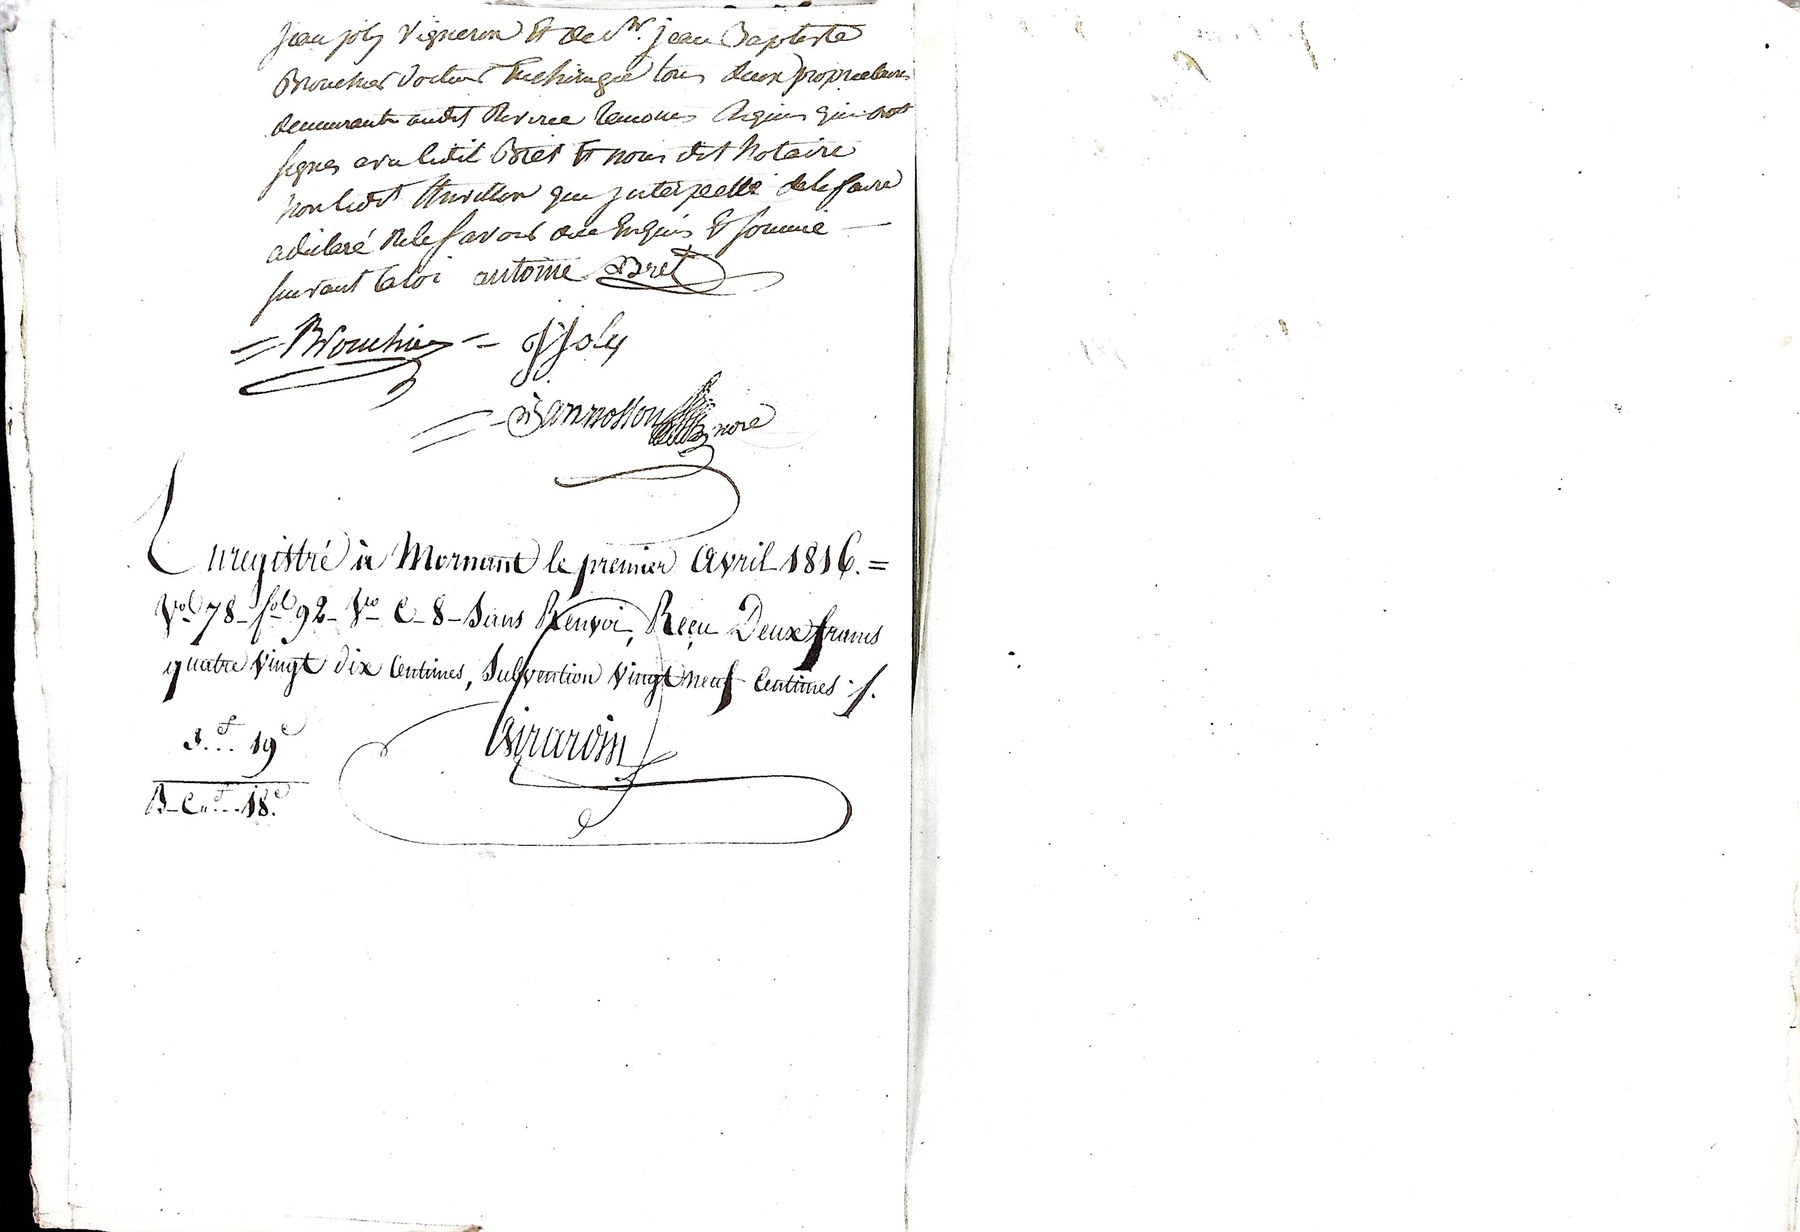 Jean joly Vigneron Et de Mr. jean Baptiste
Brouchier docteur En chirugie tous deux proprietaires
demeurants audit Riverie temoins Requis qui ont
signes avec ledit Bret Et nous dit Notaire
non ledit Thivillon que jnterpellé de le faire
a déclaré Ne le savoir dee Enquis Et sommé —
suivant la loi antoine Bret
= Brouchier = J Joly
= Bannosson nore
Enregistré à Mornant le premier Avril 1816. =
Vol 78 - fol 92 - Vso C - 8 - Sans Renvoi, Reçu Deux francs
quatre Vingt dix Centimes, Subvention Vingt neuf Centimes ·/.
3.f.. 19c
Girardin
B - C"f... 18.c